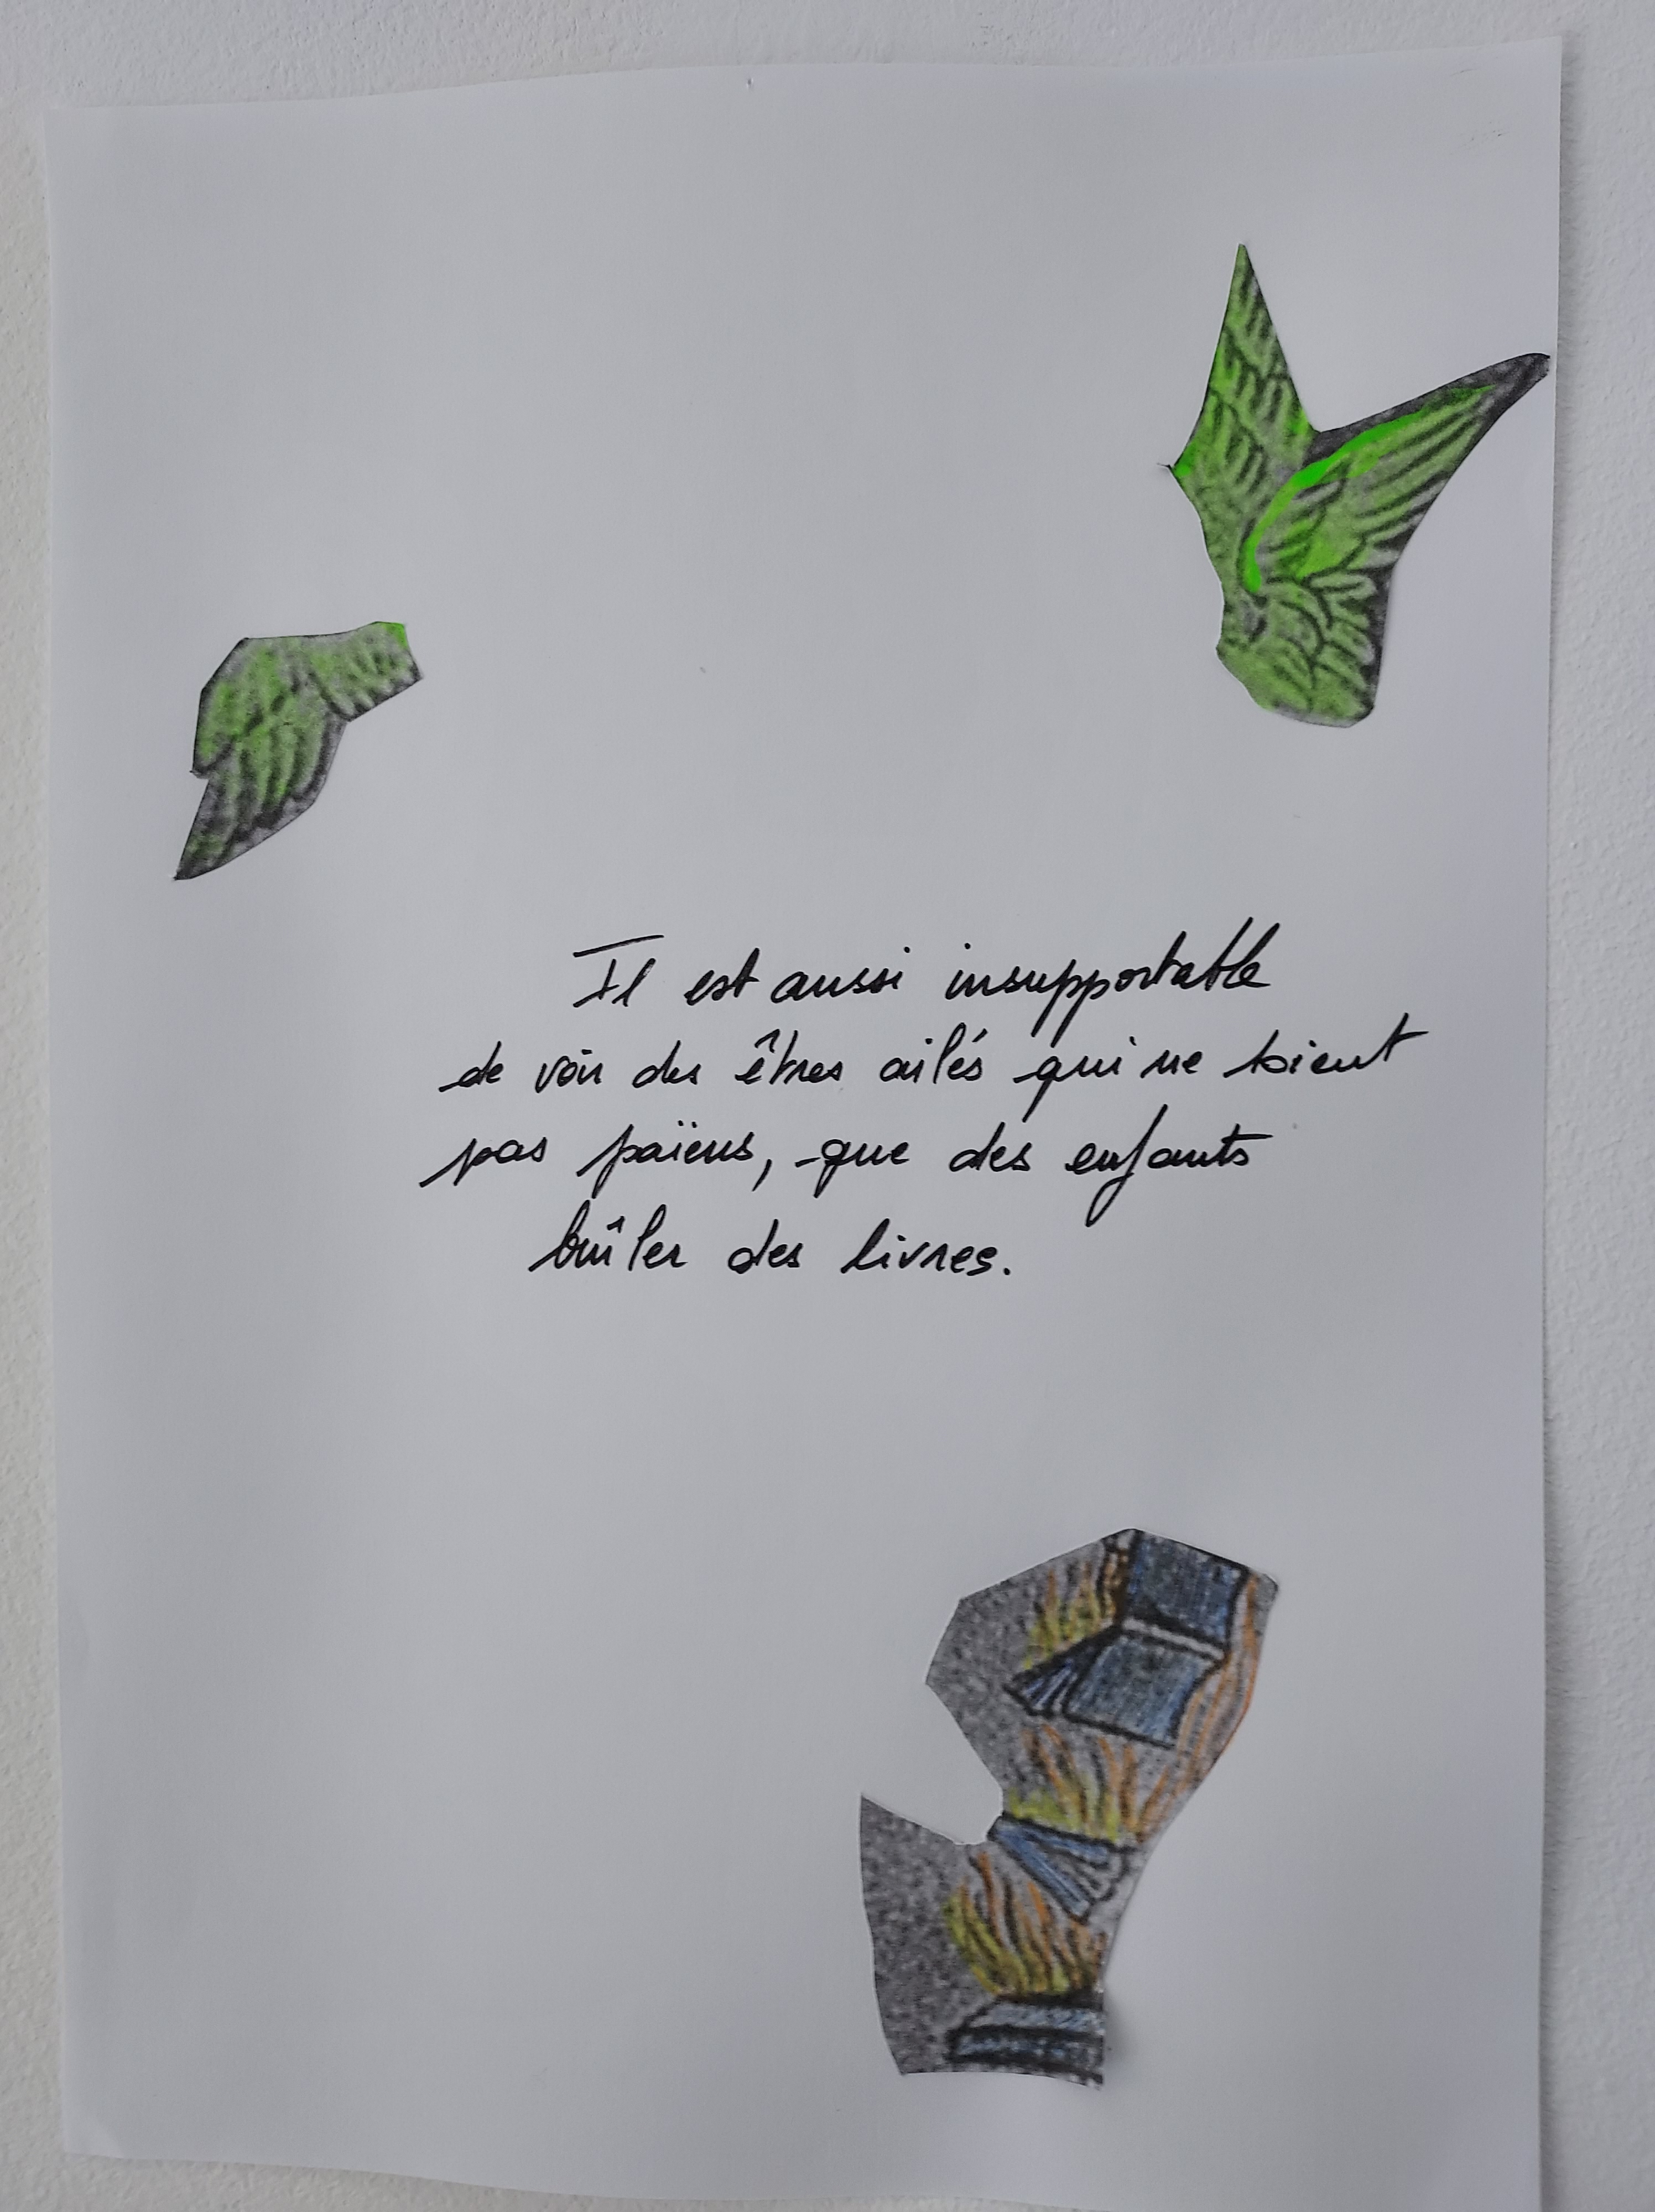 Il est aussi insupportable
de voir des êtres ailés qui ne soient
pas païens, que des enfants
brûler des livres.